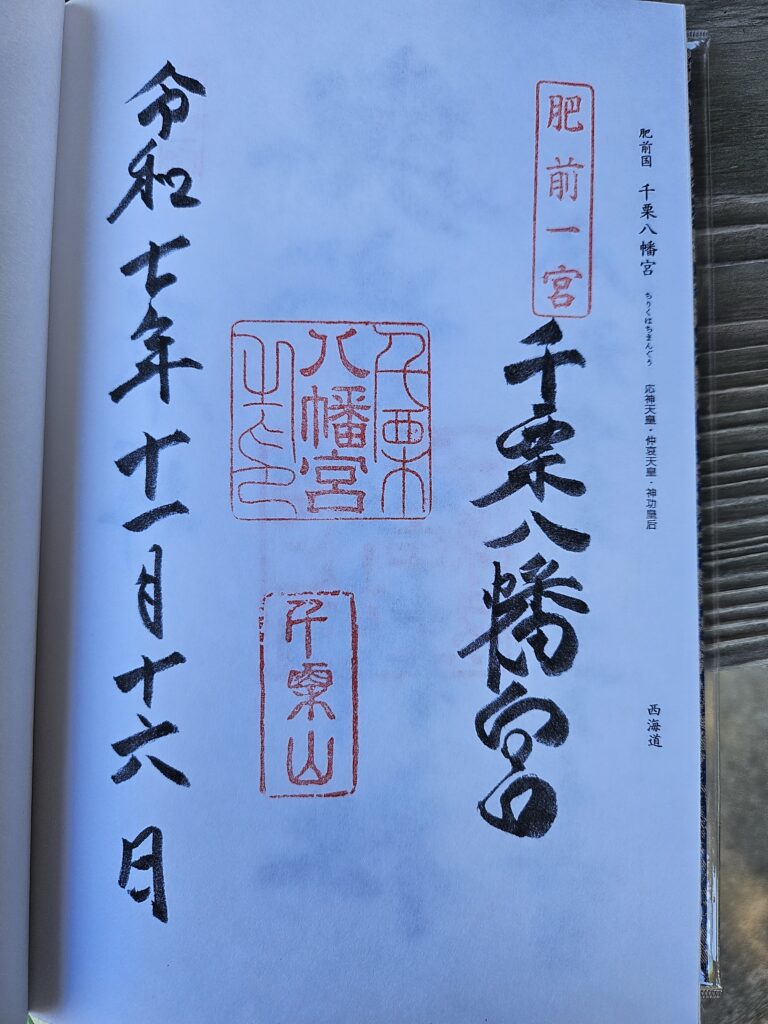 肥前国 千栗八幡宮 ちりくはちまんぐう 応神天皇・仲哀天皇・神功皇后
西海道
肥前一宮
千栗八幡宮
千栗
八幡宮
之印
千栗山
令和七年十一月十六日